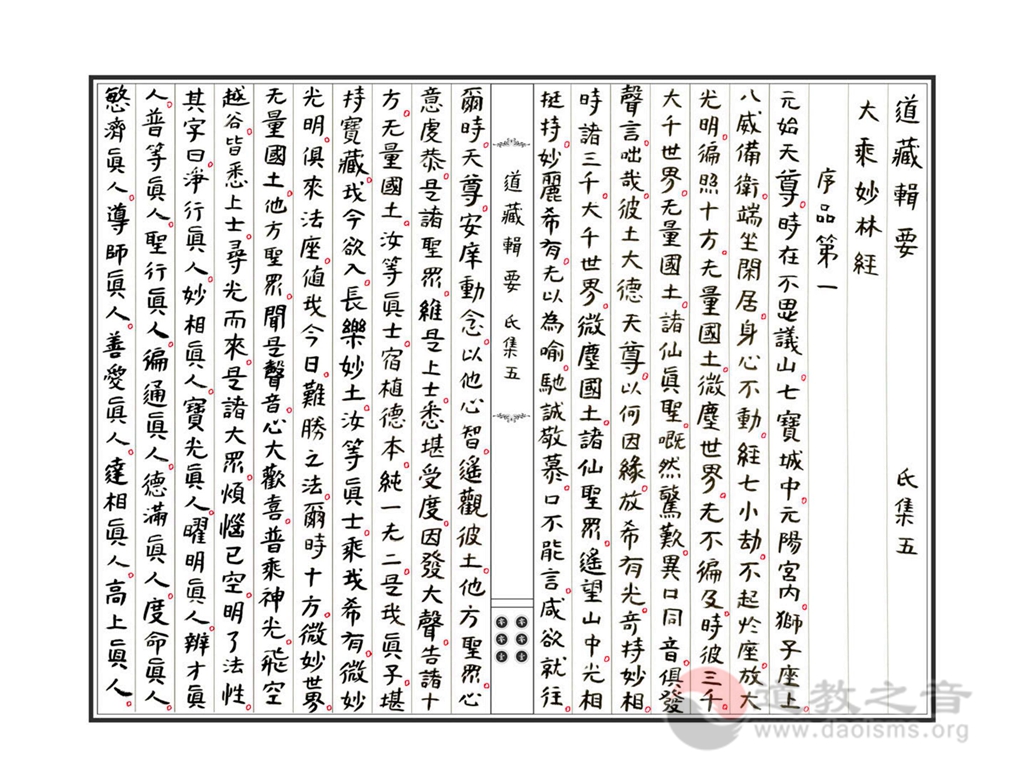 道藏輯要 氐集五
大乘妙林經
序品第一
元始天尊。時在不思議山七寶城中。元陽宮內。獅子座上。
八威備衛。端坐閑居。身心不動。經七小劫。不起於座。放大
光明。徧照十方。无量國土。微塵世界。无不徧及。時彼三千
大千世界。无量國土。諸仙眞聖。嘅然驚歎。異口同音。俱發
聲言。咄哉。彼土大德天尊。以何因緣。放希有光。奇持妙相。
時諸三千。大千世界。微塵國土。諸仙聖眾。遙望山中。光相
挺持。妙麗希有。无以為喻。馳誠敬慕。口不能言。咸欲就往。
道藏輯要 氐集五
爾時。天尊。安庠動念。以他心智。遙觀彼土。他方聖眾。心
意虔恭。是諸聖眾。維是上士。悉堪受度。因發大聲。告諸十
方。无量國土。汝等眞士。宿植德本。純一无二。是我眞子。堪
持寶藏。我今欲入。長樂妙土。汝等眞士。乘我希有。微妙
光明。俱來法座。值我今日。難勝之法。爾時十方。微妙世界。
无量國土。他方聖眾。聞是聲音。心大歡喜。普乘神光。飛空
越谷。皆悉上士。尋光而來。是諸大眾。煩惱已空。明了法性。
其字曰。淨行眞人。妙相眞人。寶光眞人。曜明眞人。辯才眞
人。普等眞人。聖行眞人。徧通眞人。德滿眞人。度命眞人。
慜濟眞人。導師眞人。善愛眞人。達相眞人。高上眞人。
道教之音
www.daoisms.org